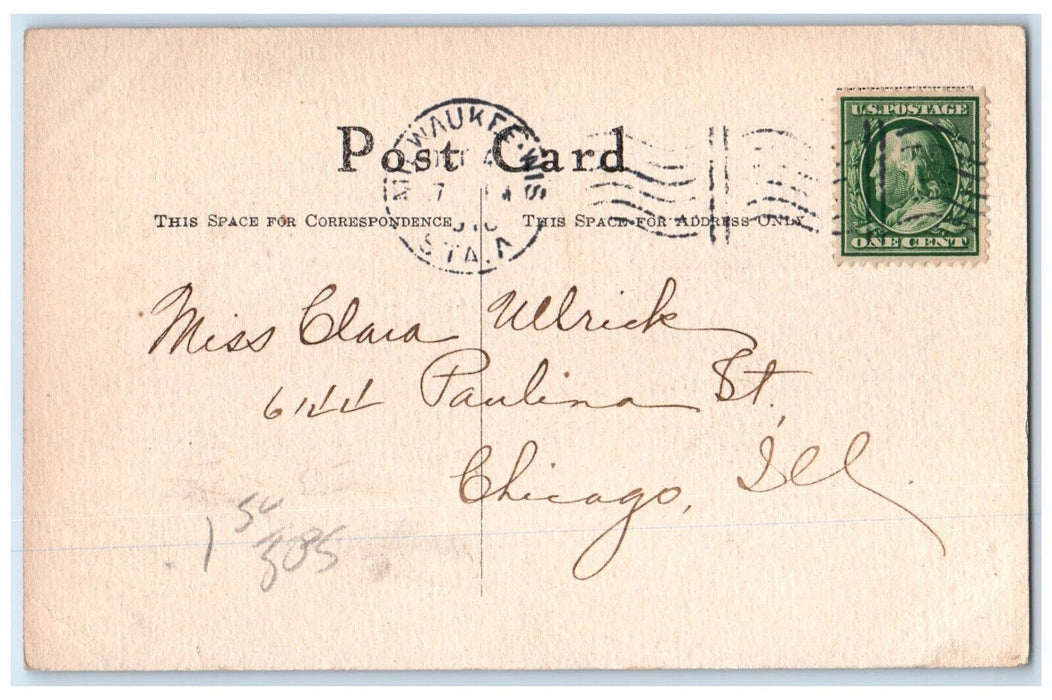 U.S. POSTAGE
ONE CENT
Post Card
MILWAUKEE. WIS
STA. A
THIS SPACE FOR CORRESPONDENCE
THIS SPACE FOR ADDRESS ONLY
Miss Clara Ullrick
Paulina St,
Chicago, Ill.